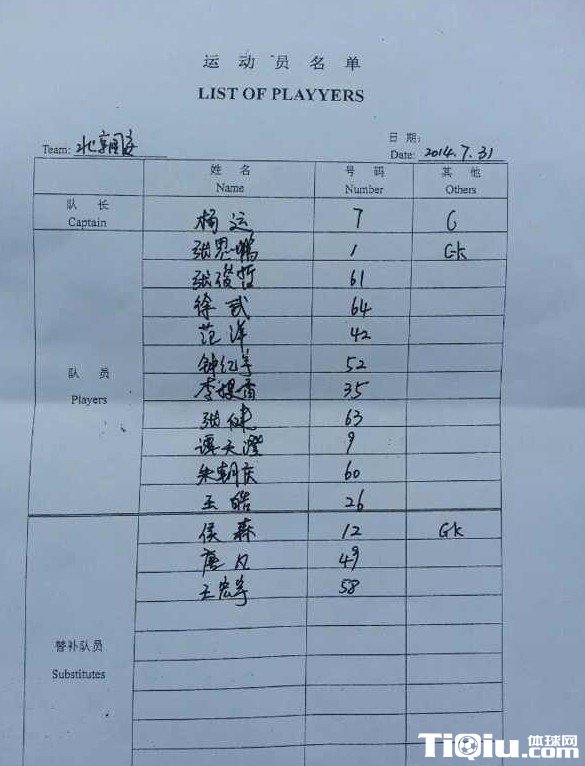 运动员名单
LIST OF PLAYYERS
日期:
Team: 北京国安 Date: 2014.7.31
姓名 号码 其他
Name Number Others
队长
Captain
杨运 7 C
张思鹏 1 GK
张俊哲 61
徐武 64
范洋 42
52
队员
Players
李提香 35
张健 63
谭天澄 9
朱朝庆 60
王皓 26
侯森 12 GK
唐凡 49
王宏宇 58
替补队员
Substitutes
TiQiu.com
体球网